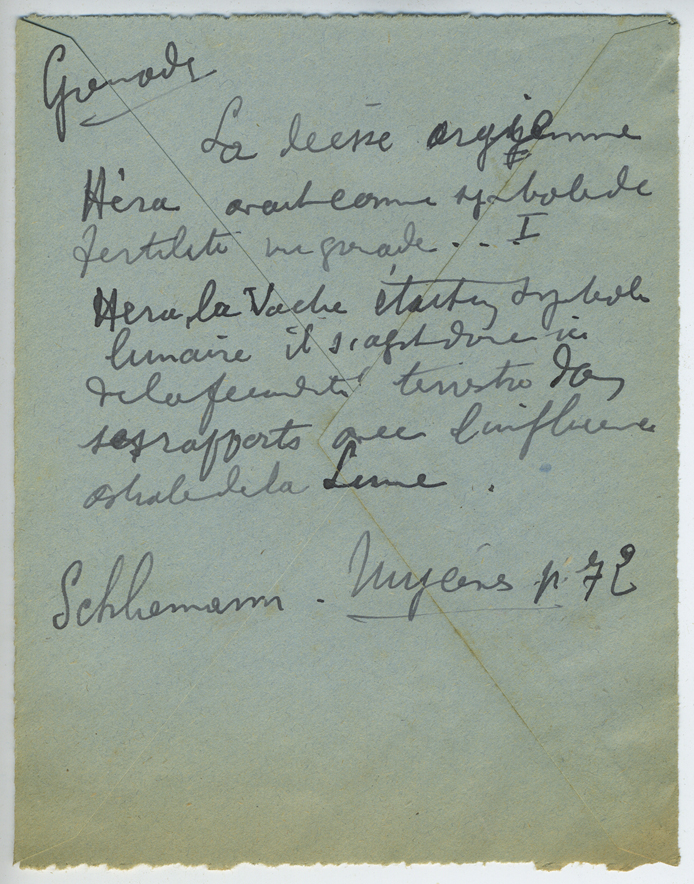 Grenade
La déesse argienne
Héra avait comme symbole de
fertilité une grenade . . I
Hera, la Vache étant un symbole
lunaire il s'agit donc ici
de la fécondité terrestre dans
ses rapports avec l'influence
astrale de la Lune .
Schliemann - Mycènes p. 72